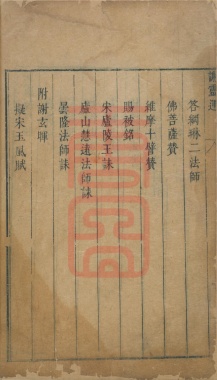 謝靈運
答綱琳二法師
佛菩薩賛
維摩十譬賛
賜被銘
宋廬陵王誄
廬山慧遠法師誄
曇隆法師誄
附謝玄暉
擬宋玉風賦